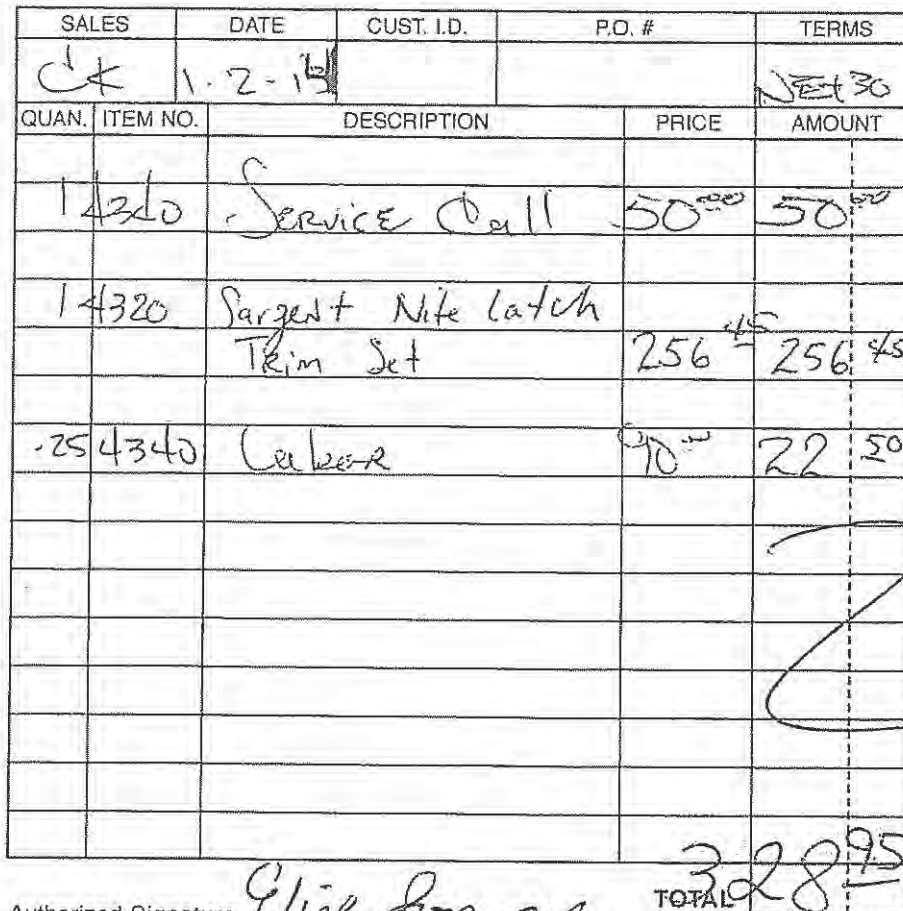 SALES DATE CUST. I.D. P.O. # TERMS
CK 1-2- NET 30
QUAN. ITEM NO. DESCRIPTION PRICE AMOUNT
1 4340 Service Call 50.00 50.00
1 4320 Sargent Nite Latch
Trim Set 256 45 256 45
.25 4340 Labor 90.00 22 50
TOTAL 328 95
Authorized Signature